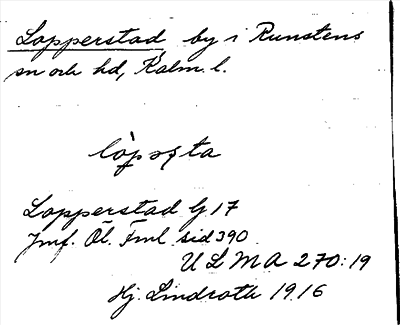 Lopperstad by i Runstens
sn och hd, Kalm. l.
Lopperstad G 17
Jmf. Öl. Fml sid 390
ULMA 270:19
Hj. Lindroth 1916